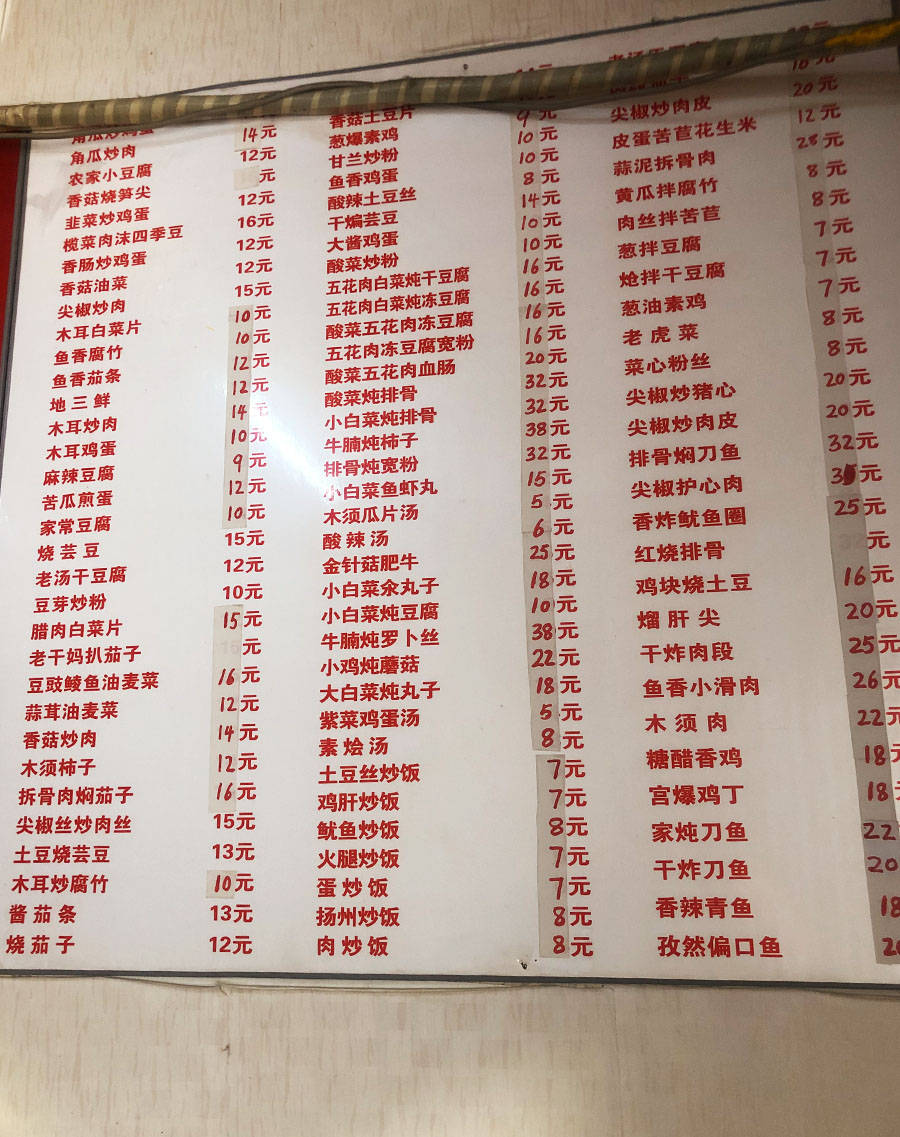 角瓜炒鸡蛋
角瓜炒肉 14元
农家小豆腐 12元
香菇烧笋尖 元
韭菜炒鸡蛋 12元
榄菜肉沫四季豆 16元
香肠炒鸡蛋 12元
香菇油菜 12元
尖椒炒肉 15元
木耳白菜片 10元
鱼香腐竹 10元
鱼香茄条 12元
地三鲜 12元
木耳炒肉 14元
木耳鸡蛋 10元
麻辣豆腐 9元
苦瓜煎蛋 12元
家常豆腐 10元
烧芸豆 15元
老汤干豆腐 12元
豆芽炒粉 10元
腊肉白菜片 15元
老干妈扒茄子 元
豆豉鲮鱼油麦菜 16元
蒜茸油麦菜 12元
香菇炒肉 14元
木须柿子 12元
拆骨肉焖茄子 16元
尖椒丝炒肉丝 15元
土豆烧芸豆 13元
木耳炒腐竹 10元
酱茄条 13元
烧茄子 12元
香菇土豆片
葱爆素鸡 9元
甘兰炒粉 10元
鱼香鸡蛋 10元
酸辣土豆丝 8元
干煸芸豆 14元
大酱鸡蛋 10元
酸菜炒粉 10元
五花肉白菜炖干豆腐 16元
五花肉白菜炖冻豆腐 16元
酸菜五花肉冻豆腐 16元
五花肉冻豆腐宽粉 16元
酸菜五花肉血肠 20元
酸菜炖排骨 32元
小白菜炖排骨 32元
牛腩炖柿子 38元
排骨炖宽粉 32元
小白菜鱼虾丸 15元
木须瓜片汤 5元
酸辣汤 6元
金针菇肥牛 25元
小白菜汆丸子 18元
小白菜炖豆腐 10元
牛腩炖罗卜丝 38元
小鸡炖蘑菇 22元
大白菜炖丸子 18元
紫菜鸡蛋汤 5元
素烩汤 8元
土豆丝炒饭 7元
鸡肝炒饭 7元
鱿鱼炒饭 8元
火腿炒饭 7元
蛋炒饭 7元
扬州炒饭 8元
肉炒饭 8元
尖椒炒肉皮 20元
皮蛋苦苣花生米 12元
蒜泥拆骨肉 28元
黄瓜拌腐竹 8元
肉丝拌苦苣 8元
葱拌豆腐 7元
炝拌干豆腐 7元
葱油素鸡 7元
老虎菜 8元
菜心粉丝 8元
尖椒炒猪心 20元
尖椒炒肉皮 20元
排骨焖刀鱼 32元
尖椒护心肉 35元
香炸鱿鱼圈 25元
红烧排骨 元
鸡块烧土豆 16元
熘肝尖 20元
干炸肉段 25元
鱼香小滑肉 26元
木须肉 22元
糖醋香鸡 18元
宫爆鸡丁 18
家炖刀鱼 22
干炸刀鱼 20
香辣青鱼 18
孜然偏口鱼